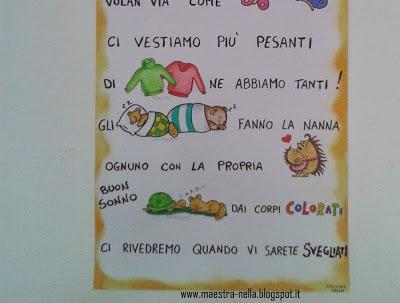 VOLAN VIA COME
CI VESTIAMO PIÙ PESANTI
DI NE ABBIAMO TANTI!
zz zz
GLI FANNO LA NANNA
OGNUNO CON LA PROPRIA
BUON SONNO
DAI CORPI COLORATI
CI RIVEDREMO QUANDO VI SARETE SVEGLIATI
www.maestra-nella.blogspot.it